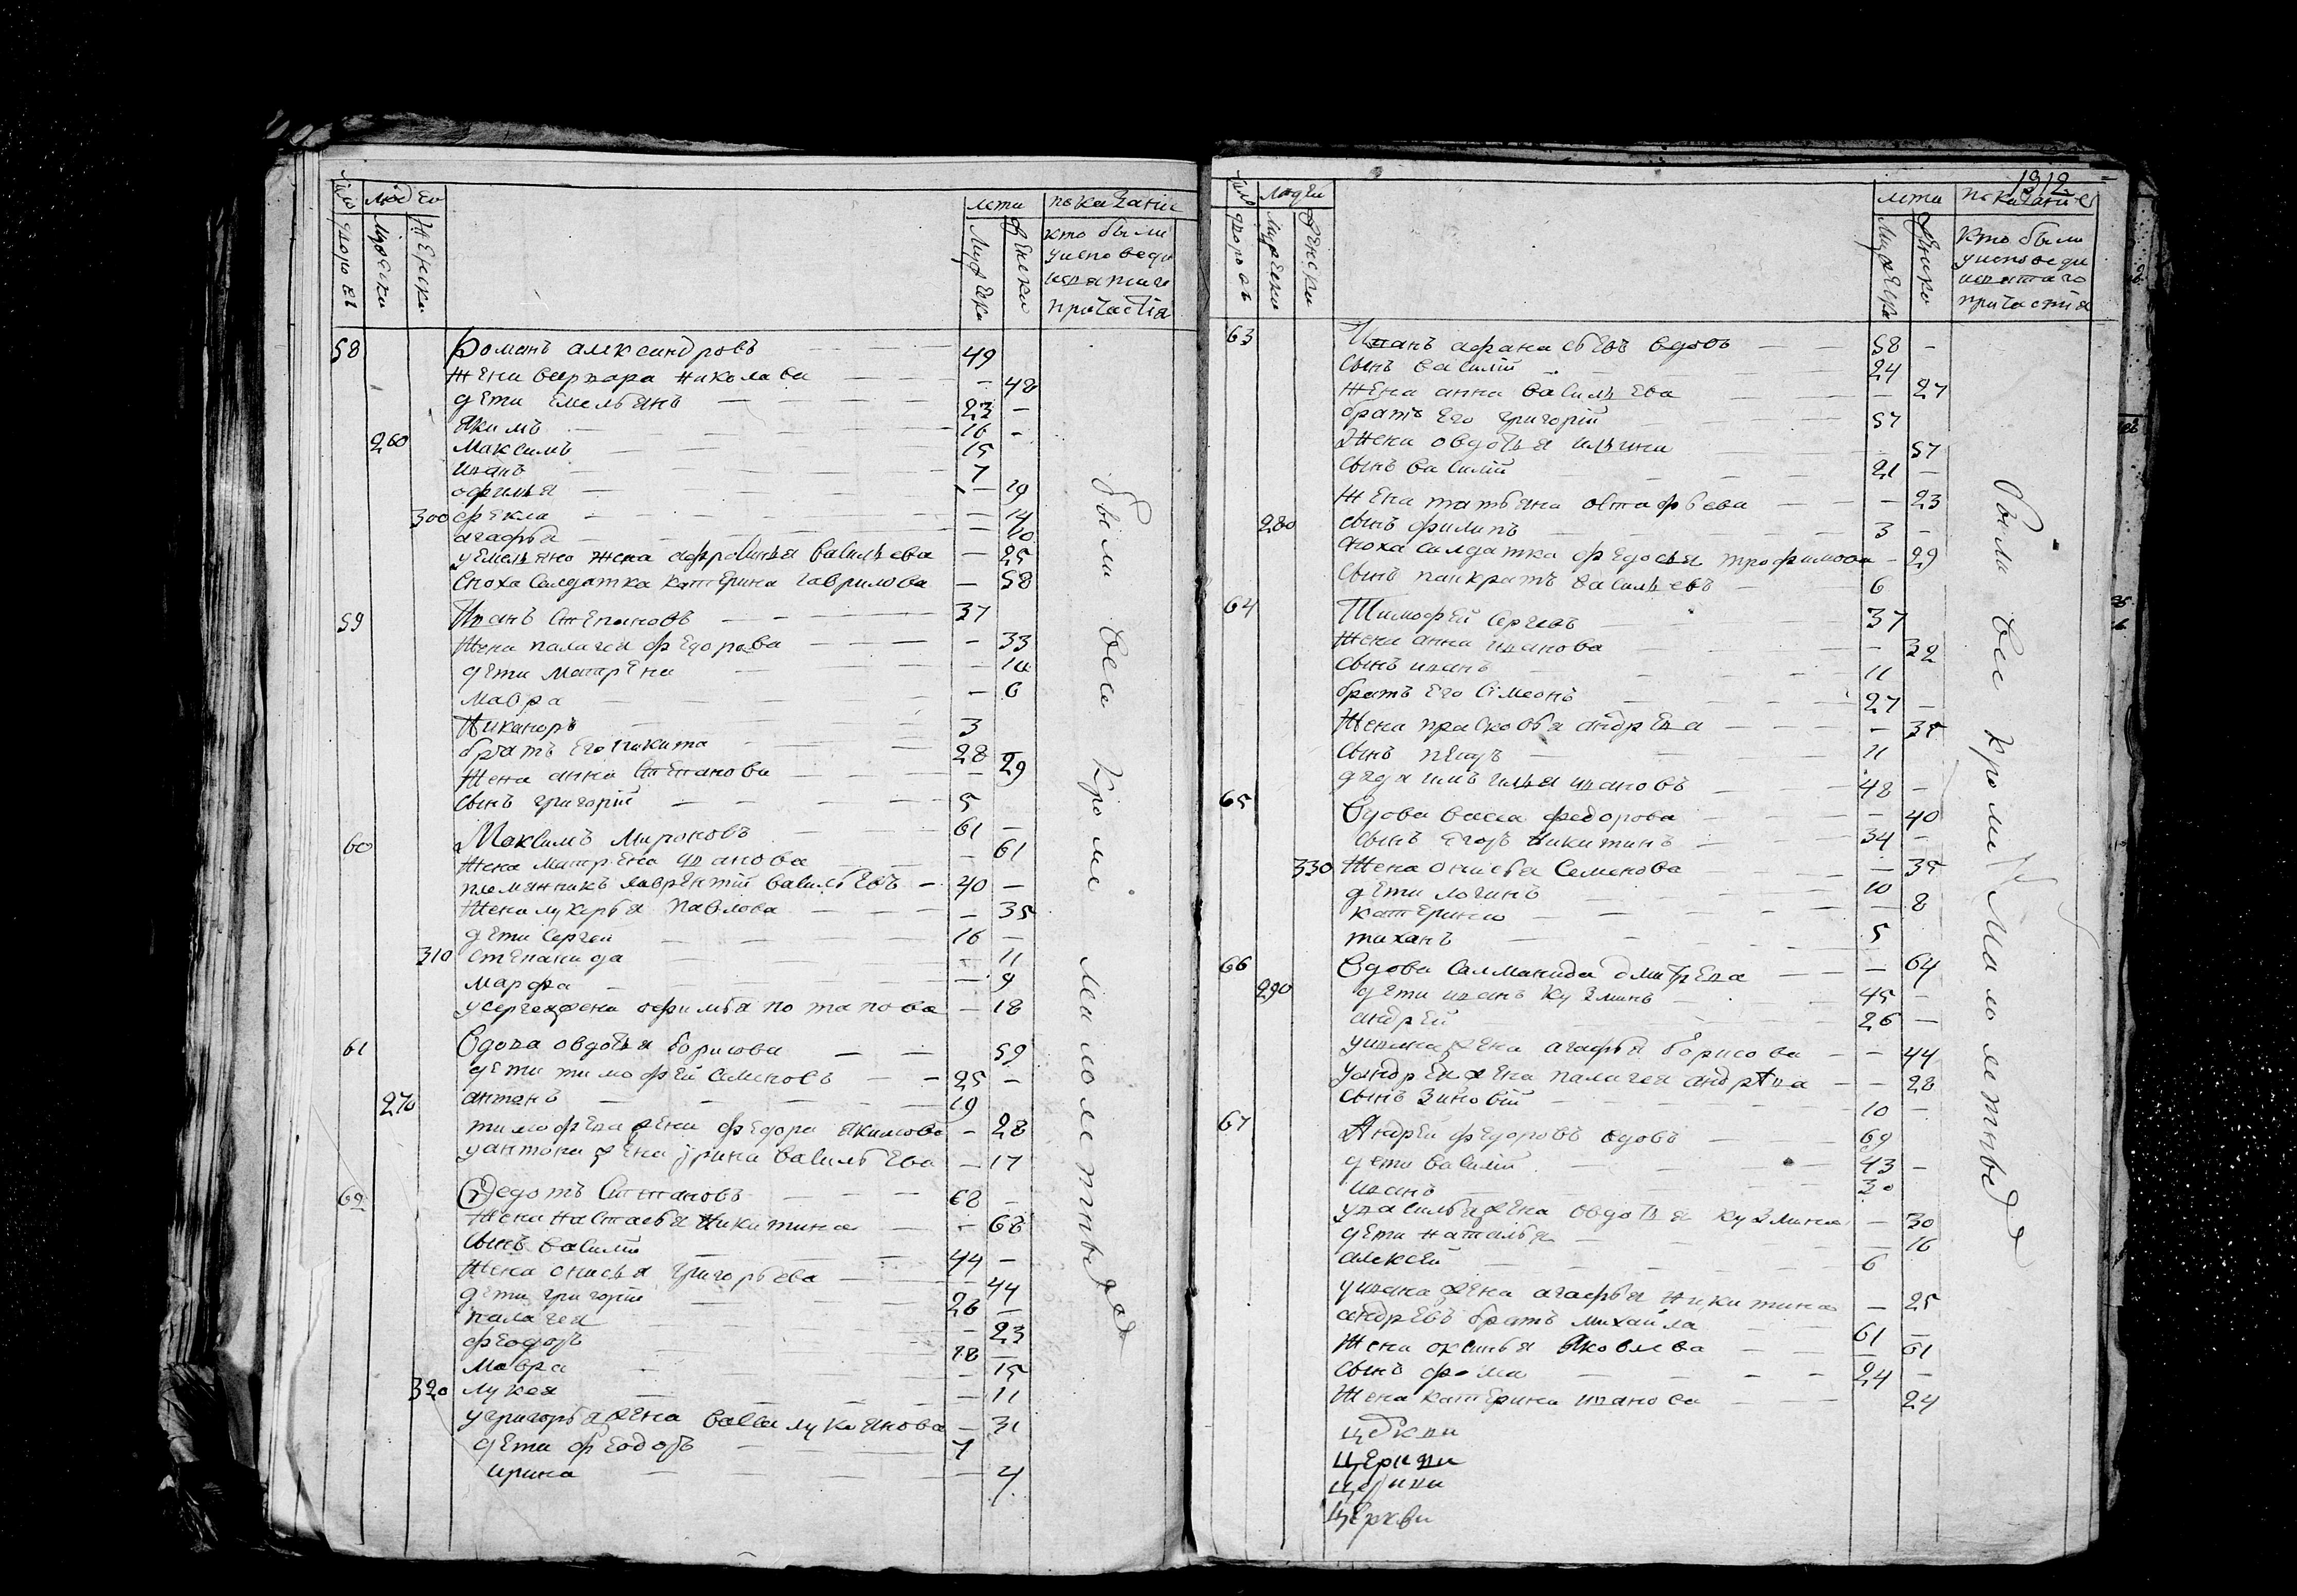 число дворовъ
людей
мужеска
женска
лета
мужеска
женска
показание
кто были
у исповеди
и святаго
причастия
58 Романъ александровъ 49
жена варвара николаева 48
дети емельянъ 23
якимъ 16
260 максимъ 15
иванъ 7
офимья 19
300 фекла 14
агафья 10
у емельяно жена афросинья васильева 25
сноха салдатка катерина гаврилова 58
59 Иванъ степановъ 37
жена палагея федорова 33
дети матрена 14
мавра 6
Никаноръ 3
братъ его никита 28
жена анна степанова 29
сынъ григорий 5
60 Максимъ мироновъ 61
жена матрена иванова 61
племянникъ лаврентий васильевъ 40
жена лукерья павлова 35
дети сергей 16
310 степанида 11
марфа 9
у сергея жена офимья потапова 18
61 Вдова овдотья борисова 59
дети тимофей семеновъ 25
270 антонъ 19
тимофева жена федора якимова 28
у антона жена ирина васильева 17
62 Федотъ степановъ 68
жена настасья никитина 68
сынъ василий 44
жена анисья григорьева 44
дети григорий 26
палагея 23
феодоръ 18
мавра 15
320 лукея 11
у григорья жена васса лукиянова 31
дети феодоръ 7
ирина 4
были все кроме малолетныхъ
1912
число дворовъ
людей
мужеска
женска
лета
мужеска
женска
показание
кто были
у исповеди
и святаго
причастия
63 Иванъ афанасьевъ вдовъ 58
сынъ василий 24
жена анна васильева 27
братъ его григорий 57
жена овдотья ильина 57
сынъ василий 21
жена татьяна остафьева 23
280 сынъ филипъ 3
сноха салдатка федосья трофимова 29
сынъ панкратъ васильевъ 6
64 Тимофей сергевъ 37
жена анна иванова 32
сынъ иванъ 11
братъ его симеонъ 27
жена прасковья андрева 35
сынъ петръ 11
дядя имъ илья ивановъ 48
65 Вдова васса федорова 40
сынъ егоръ никитинъ 34
330 жена онисья семенова 35
дети логинъ 10
катерина 8
тиханъ 5
66 Вдова салманида дмитрева 64
290 дети иванъ кузминъ 45
андрей 26
у ивана жена агафья борисова 44
у андрея жена палагея андрева 28
сынъ зиновий 10
67 Андрей федоровъ вдовъ 69
дети василий 43
иванъ 30
у василья жена овдотья кузмина 30
дети наталья 16
алексей 6
у ивана жена агафья никитина 25
андревъ братъ михайла 61
жена оксинья яковлева 61
сынъ фома 24
жена катерина иванова 24
церкви
церкви
церкви
были все кроме малолетныхъ